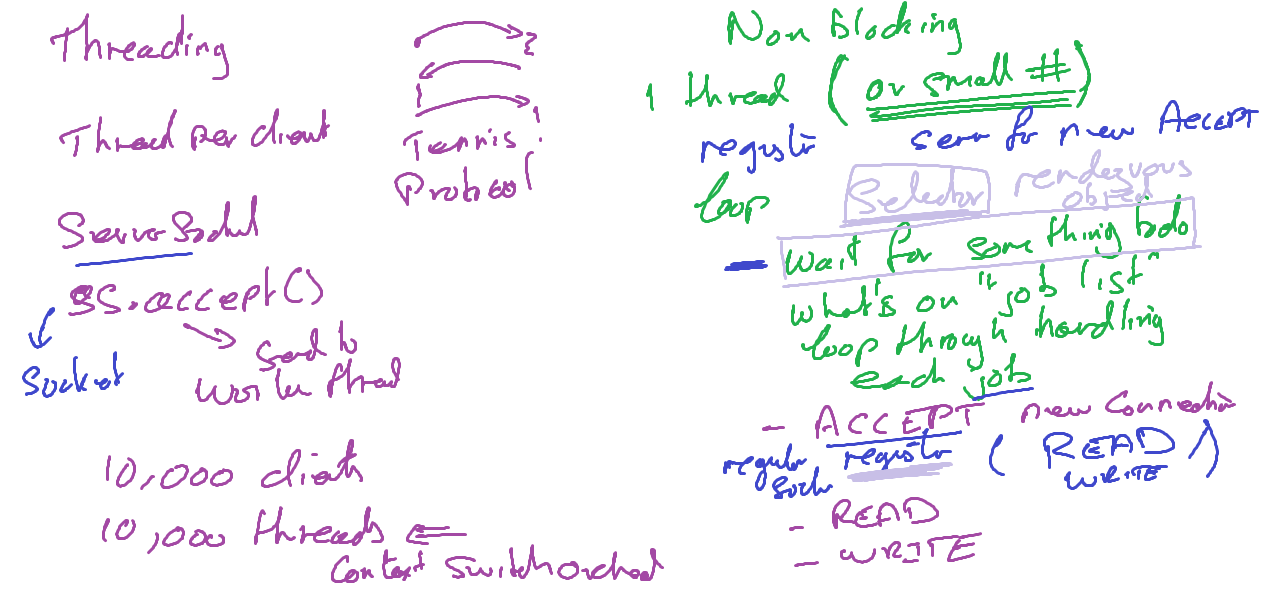 Threading
Thread per client
Tennis
Protocol
ServerSocket
ss.accept()
Socket
send to
worker thread
10,000 clients
10,000 threads
context switch overhead
Non blocking
1 thread (or small #)
register serv for new ACCEPT
loop
Selector rendezvous
object
- wait for something to do
what's on "job list"
loop through handling
each job
- ACCEPT new connection
regular register ( READ )
socket WRITE
- READ
- WRITE